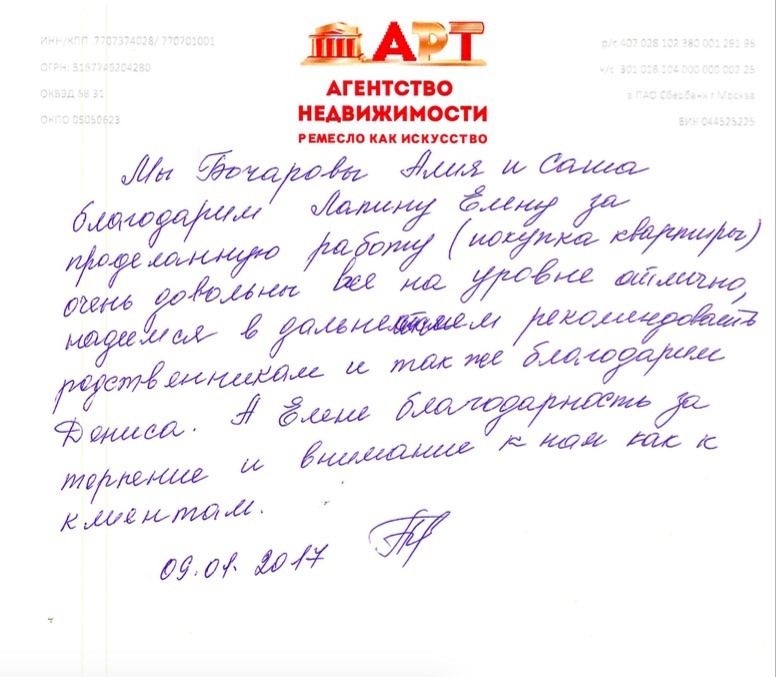 ИНН/КПП 7707374028/ 770701001
ОГРН: 5167746204280
ОКВЭД 68.31
ОКПО 05050623
АРТ
АГЕНТСТВО
НЕДВИЖИМОСТИ
РЕМЕСЛО КАК ИСКУССТВО
р/с 407 028 102 380 001 291 95
к/с 301 018 104 000 000 002 25
в ПАО Сбербанк г Москва
БИК 044525225
Мы Бочаровы Алия и Саша
благодарим Лапину Елену за
проделанную работу (покупка квартиры)
очень довольны все на уровне отлично,
надеемся в дальнейшем рекомендовать
родственникам и так же благодарим
Дениса. А Елене благодарность за
терпение и внимание к нам как к
клиентам.
09.01.2017